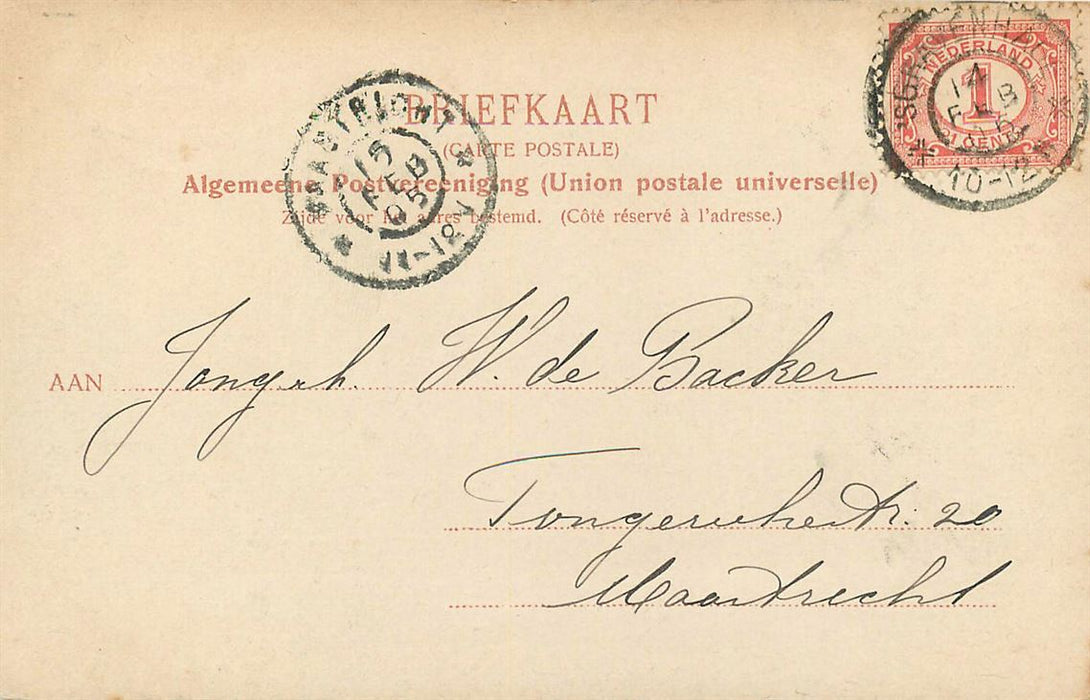 BRIEFKAART
(CARTE POSTALE)
Algemeene Postvereeniging (Union postale universelle)
Zijde voor het adres bestemd. (Côté réservé à l'adresse.)
MAASTRICHT
15
FEB
05
11-12V
NEDERLAND
1
CENT
14
FEB
10-12
AAN Jongh. W. de Backer
Tongerschestr. 20
Maastricht